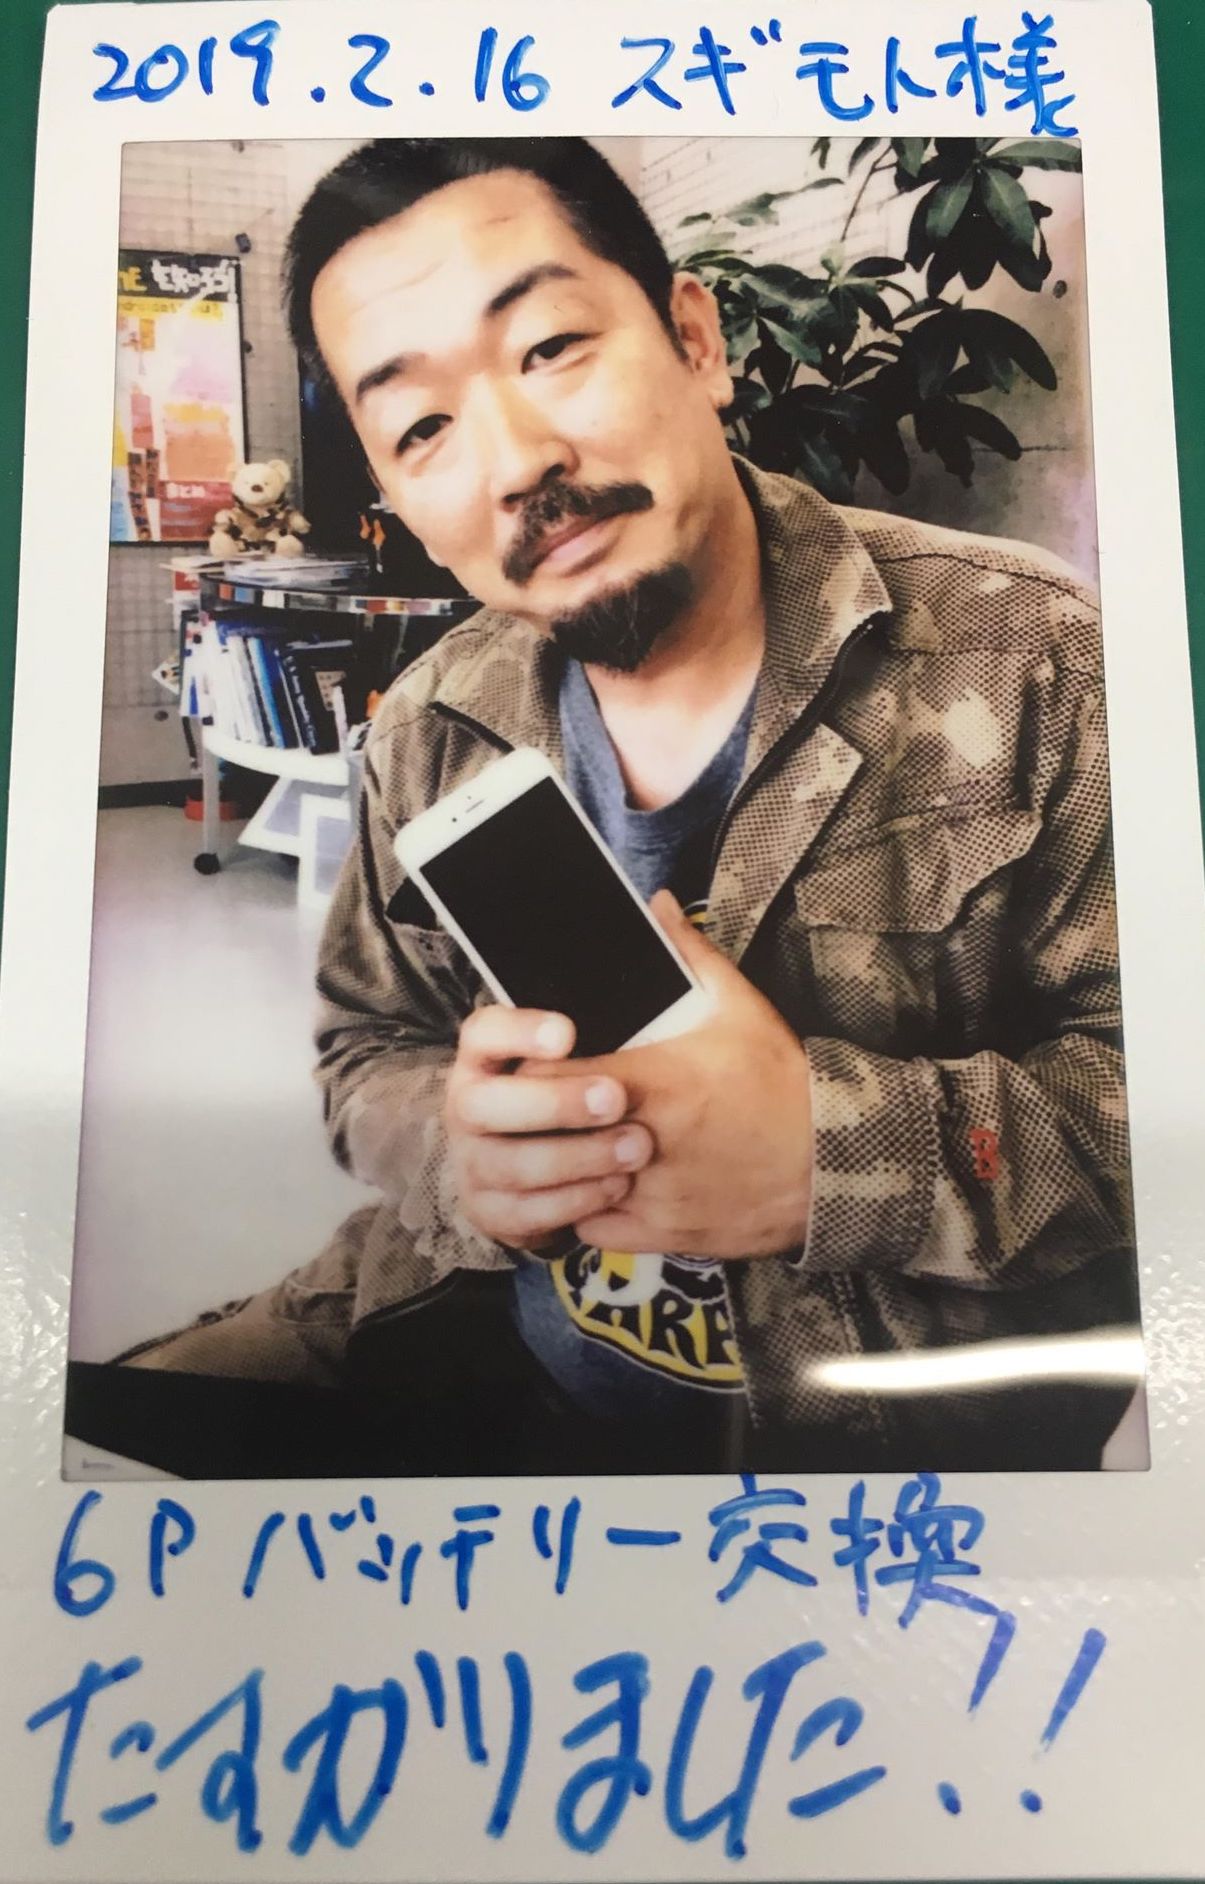 2019.2.16 スギモト様
を知ろう!
まとめ
6P バッテリー交換
たすかりました!!